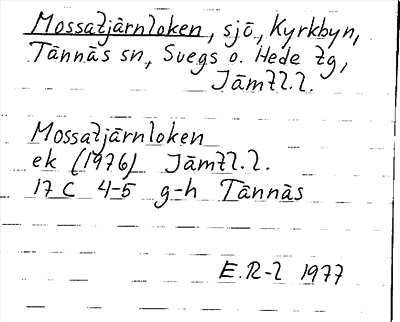 Mossatjärnloken, sjö, Kyrkbyn,
Tännäs sn, Svegs o. Hede tg,
Jämtl.l.
Mossatjärnloken
ek (1976) Jämtl.l.
17 C 4-5 g-h Tännäs
E.R-l 1977